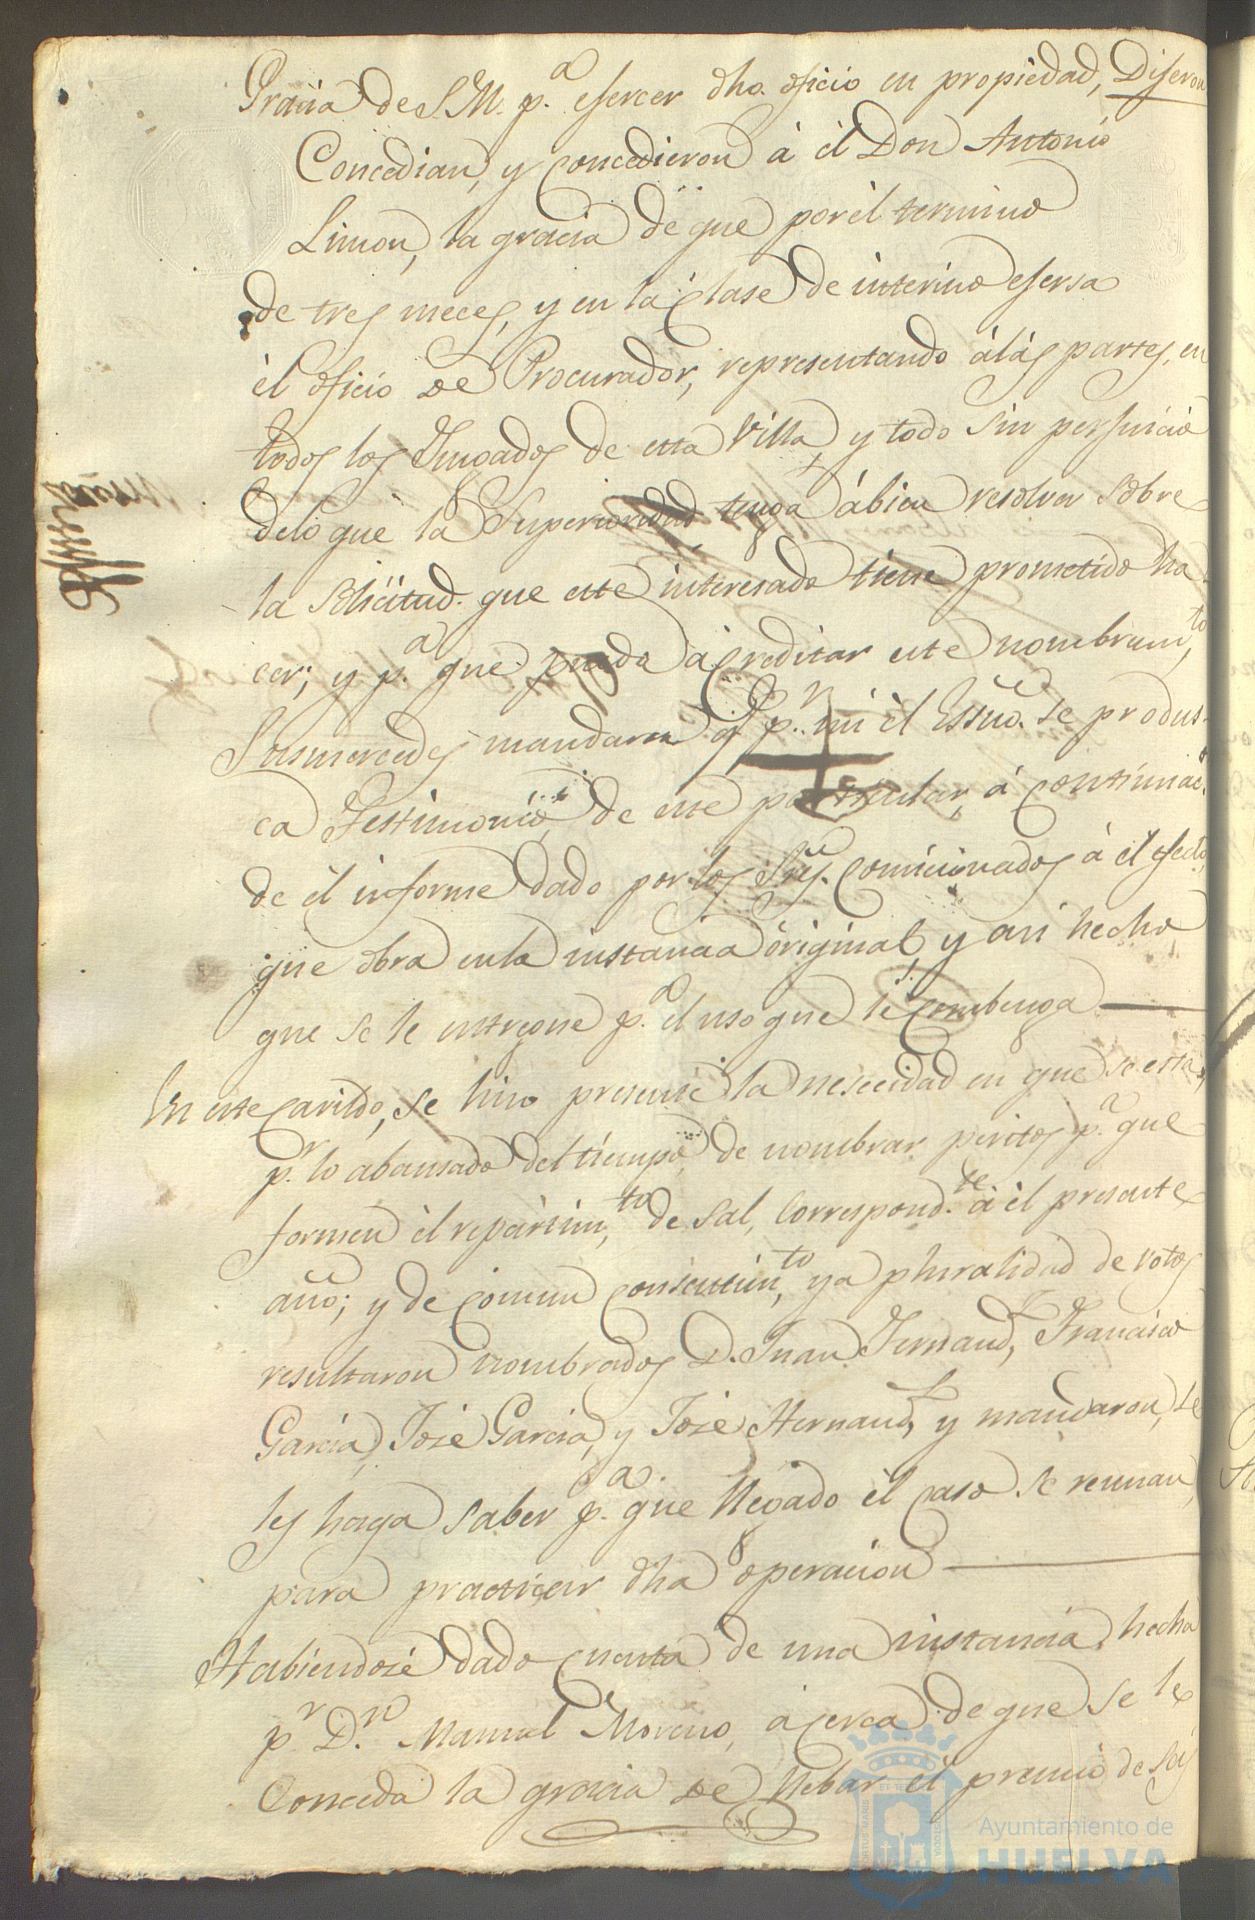 Gracia de S.M. p.a esercer dho. oficio en propiedad, Diseron
Concedian, y Concedieron á él Don Antonio
Limon, la gracia de que por él termino
de tres meces, y en la clase de interino esersa
él oficio de Procurador, representando álás partes, en
todos los Jusgados de esta Villa, y todo sin persuicio
delo que la Superioridad tenga ábien resolver sobre
la solicitud. que este interesado tiene prometido ha
cer; y p.a que pueda acreditar este nombram.to
Susmercedes mandaron q.e p.r mi él Essno. se produs-
ca Testimonio, de este particular, á continuac.n
de él informe dado por los Sres. Comicionados á él efecto,
que obra enla instancia original, y asi hecho
que se le entregue p.a el uso que le combenga
En este Cavildo, se hiso presente la nesecidad en que se está,
p.r lo abansado del tiempo, de nombrar peritos p.a que
formen él repartim.to de sal, correspond.te á él presente
año; y de comun consentim.to y a pluralidad de votos
resultaron nombrados D. Juan Fernand.z, Francisco
Garcia, José Garcia, y José Hernand.z y mandaron, se
les haga saber p.a que llegado él caso se reunan,
para practicar dha operacion
Habiendose dado cuenta de una instancia, hecha
p.r D.n Manuel Moreno, ácerca de que se le
Conceda la gracia de llebar él premio de seis
Ayuntamiento de
HUELVA